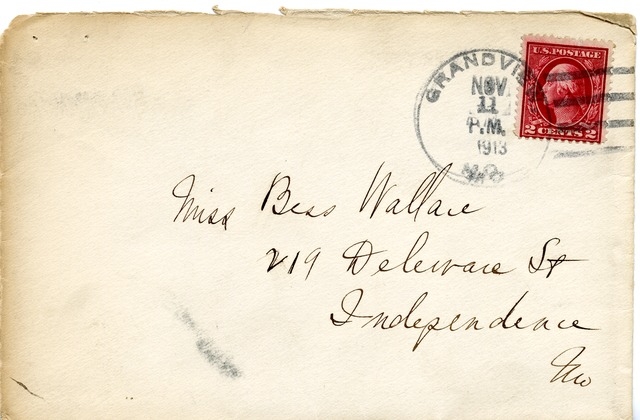 GRANDVIEW
NOV.
11
P.M.
1913
MO.
U.S. POSTAGE
2 CENTS 2
Miss Bess Wallace
219 Deleware St
Independence
Mo